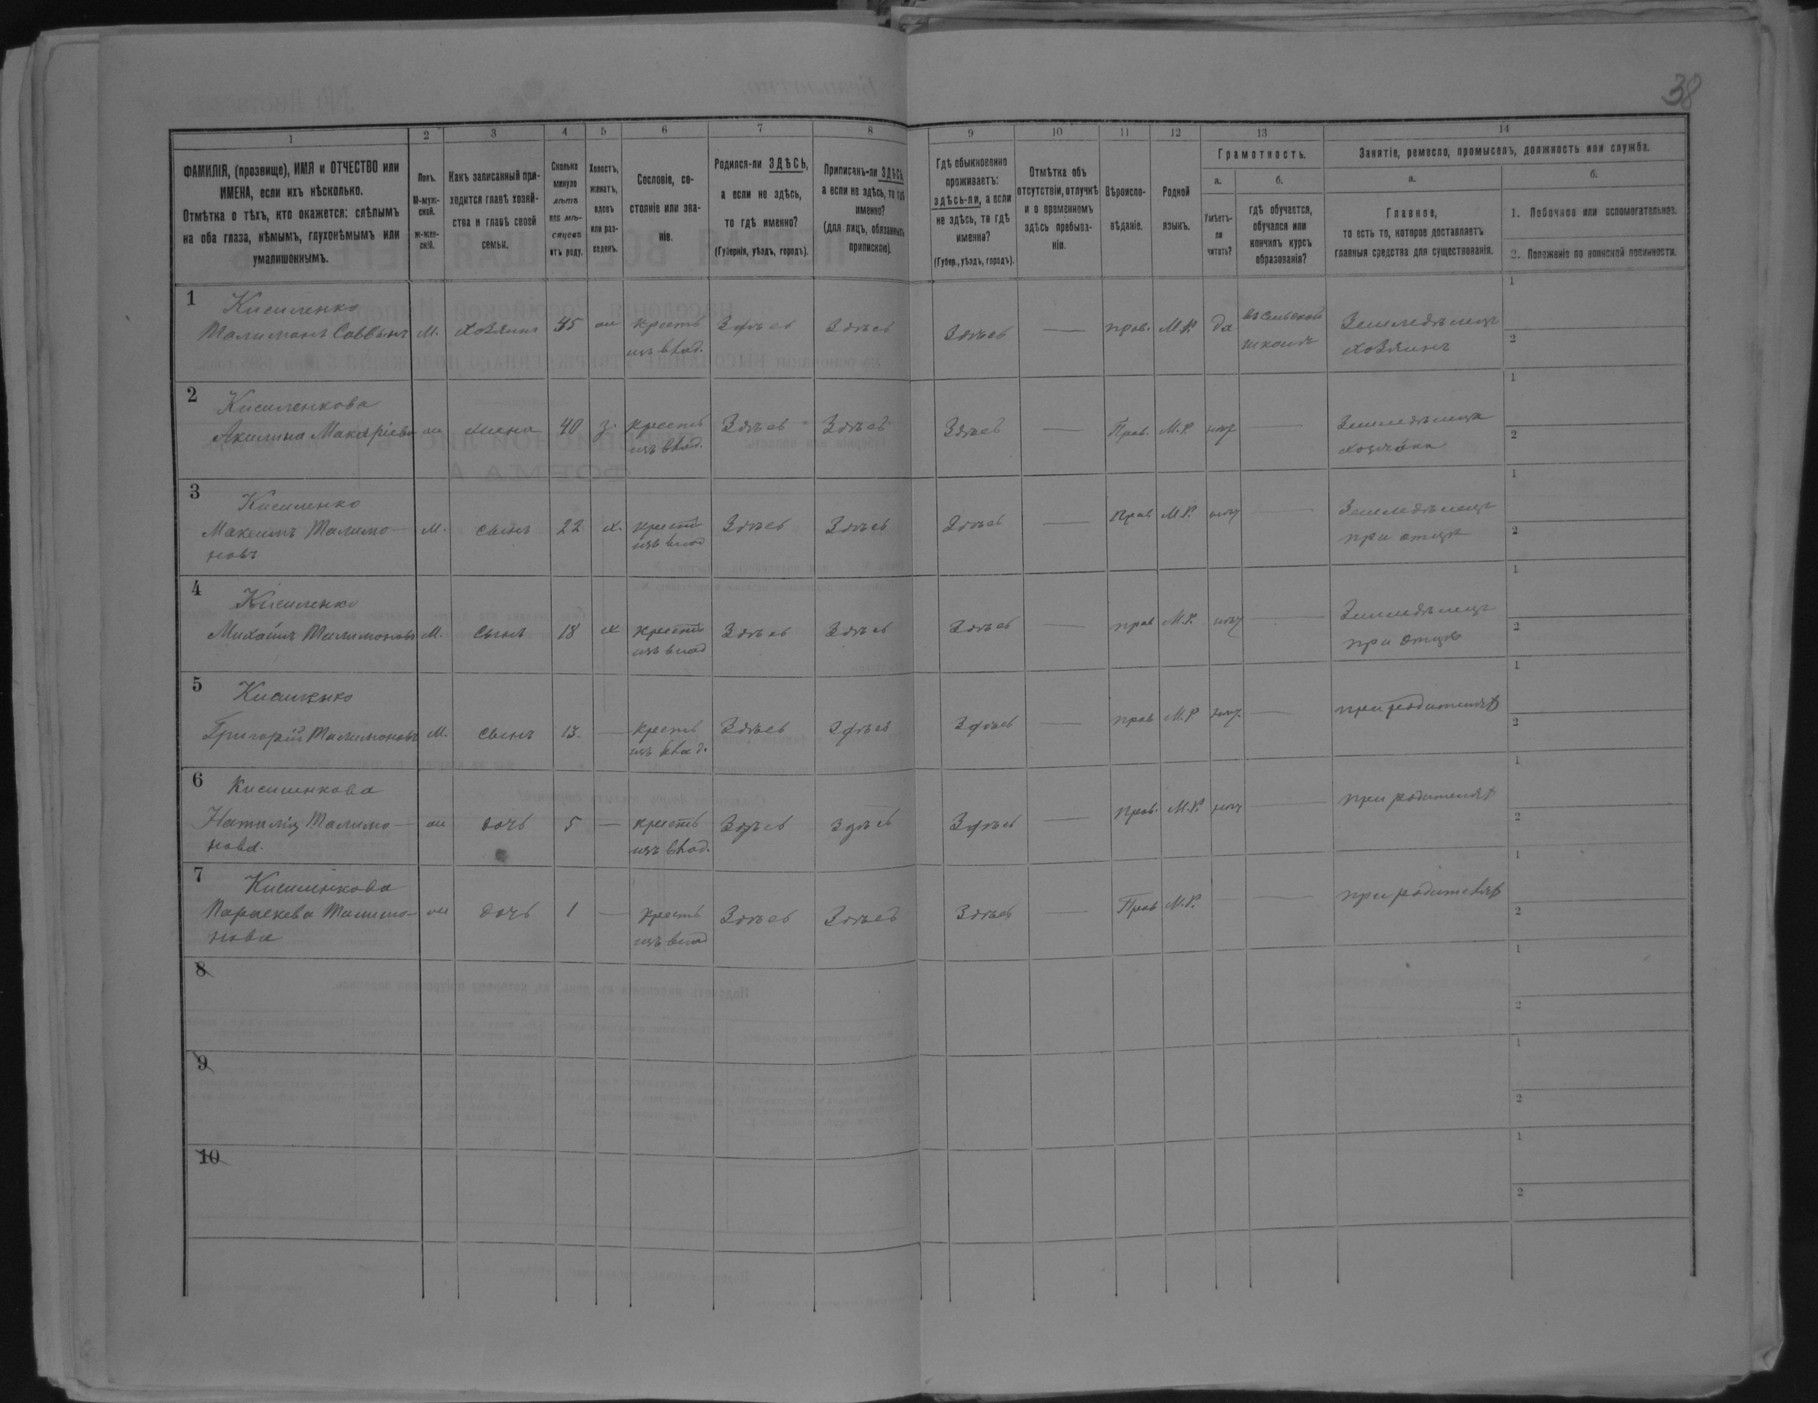 38
1 2 3 4 5 6 7 8 9 10 11 12 13 14
ФАМИЛІЯ, (прозвище), ИМЯ и ОТЧЕСТВО или
ИМЕНА, если ихъ нѣсколько.
Отмѣтка о тѣхъ, кто окажется: слѣпымъ
на оба глаза, нѣмымъ, глухонѣмымъ или
умалишеннымъ.
Полъ.
М-муж-
ской.
Ж-жен-
скій.
Какъ записанный при-
ходится главѣ хозяй-
ства и главѣ своей
семьи.
Сколько
минуло
лѣтъ
или мѣ-
сяцевъ
отъ роду.
Холостъ,
женатъ,
вдовъ
или раз-
веденъ.
Сословіе, со-
стояніе или зва-
ніе.
Родился-ли ЗДѢСЬ,
а если не здѣсь,
то гдѣ именно?
(Губернія, уѣздъ, городъ).
Приписанъ-ли ЗДѢСЬ,
а если не здѣсь, то гдѣ
именно?
(для лицъ, обязанныхъ
припискою).
Гдѣ обыкновенно
проживаетъ:
здѣсь-ли, а если
не здѣсь, то гдѣ
именно?
(Губер., уѣздъ, городъ).
Отмѣтка объ
отсутствіи, отлучкѣ
и о временномъ
здѣсь пребыва-
ніи.
Вѣроиспо-
вѣданіе.
Родной
языкъ.
Грамотность.
а.
Умѣетъ-
ли
читать?
б.
гдѣ обучается,
обучался или
кончилъ курсъ
образованія?
Занятіе, ремесло, промыселъ, должность или служба.
а.
Главное,
то есть то, которое доставляетъ
главныя средства для существованія.
б.
1. Побочное или вспомогательное.
2. Положеніе по воинской повинности.
1 Кисиленко
Талимонъ Саввинъ М. хозяинъ 45 ж крестъ Здѣсь Здѣсь Здѣсь — прав. М.Р. да въ сельской Земледѣлецъ 1
изъ влад. школѣ хозяинъ 2
2 Кисиленкова
Акилина Макаріева ж жена 40 з. крестъ Здѣсь Здѣсь Здѣсь — Прав. М.Р. нѣт — Земледѣлецъ 1
изъ влад. хозяйка 2
3 Кисиленко
Максимъ Талимо- М. сынъ 22 х. крестъ Здѣсь Здѣсь Здѣсь — Прав М.Р. нѣт — Земледѣлецъ 1
новъ изъ влад при отцѣ 2
4 Кисиленко
Михаилъ Талимоновъ М. сынъ 18 х крестъ Здѣсь Здѣсь Здѣсь — прав М.Р. нѣт — Земледѣлецъ 1
изъ влад при отцѣ 2
5 Кисиленко
Григорій Талимоновъ М. сынъ 13 — крестъ Здѣсь Здѣсь Здѣсь — прав М.Р нѣт — при родителяхъ 1
изъ влад. 2
6 Кисиленкова
Наталія Талимо- ж дочь 5 — крестъ Здѣсь Здѣсь Здѣсь — прав. М.Р. нѣт — при родителяхъ 1
нова. изъ влад. 2
7 Кисиленкова
Параскева Талимо- ж дочь 1 — крестъ Здѣсь Здѣсь Здѣсь — Прав М.Р. — — при родителяхъ 1
нова изъ влад 2
8 1
2
9 1
2
10 1
2